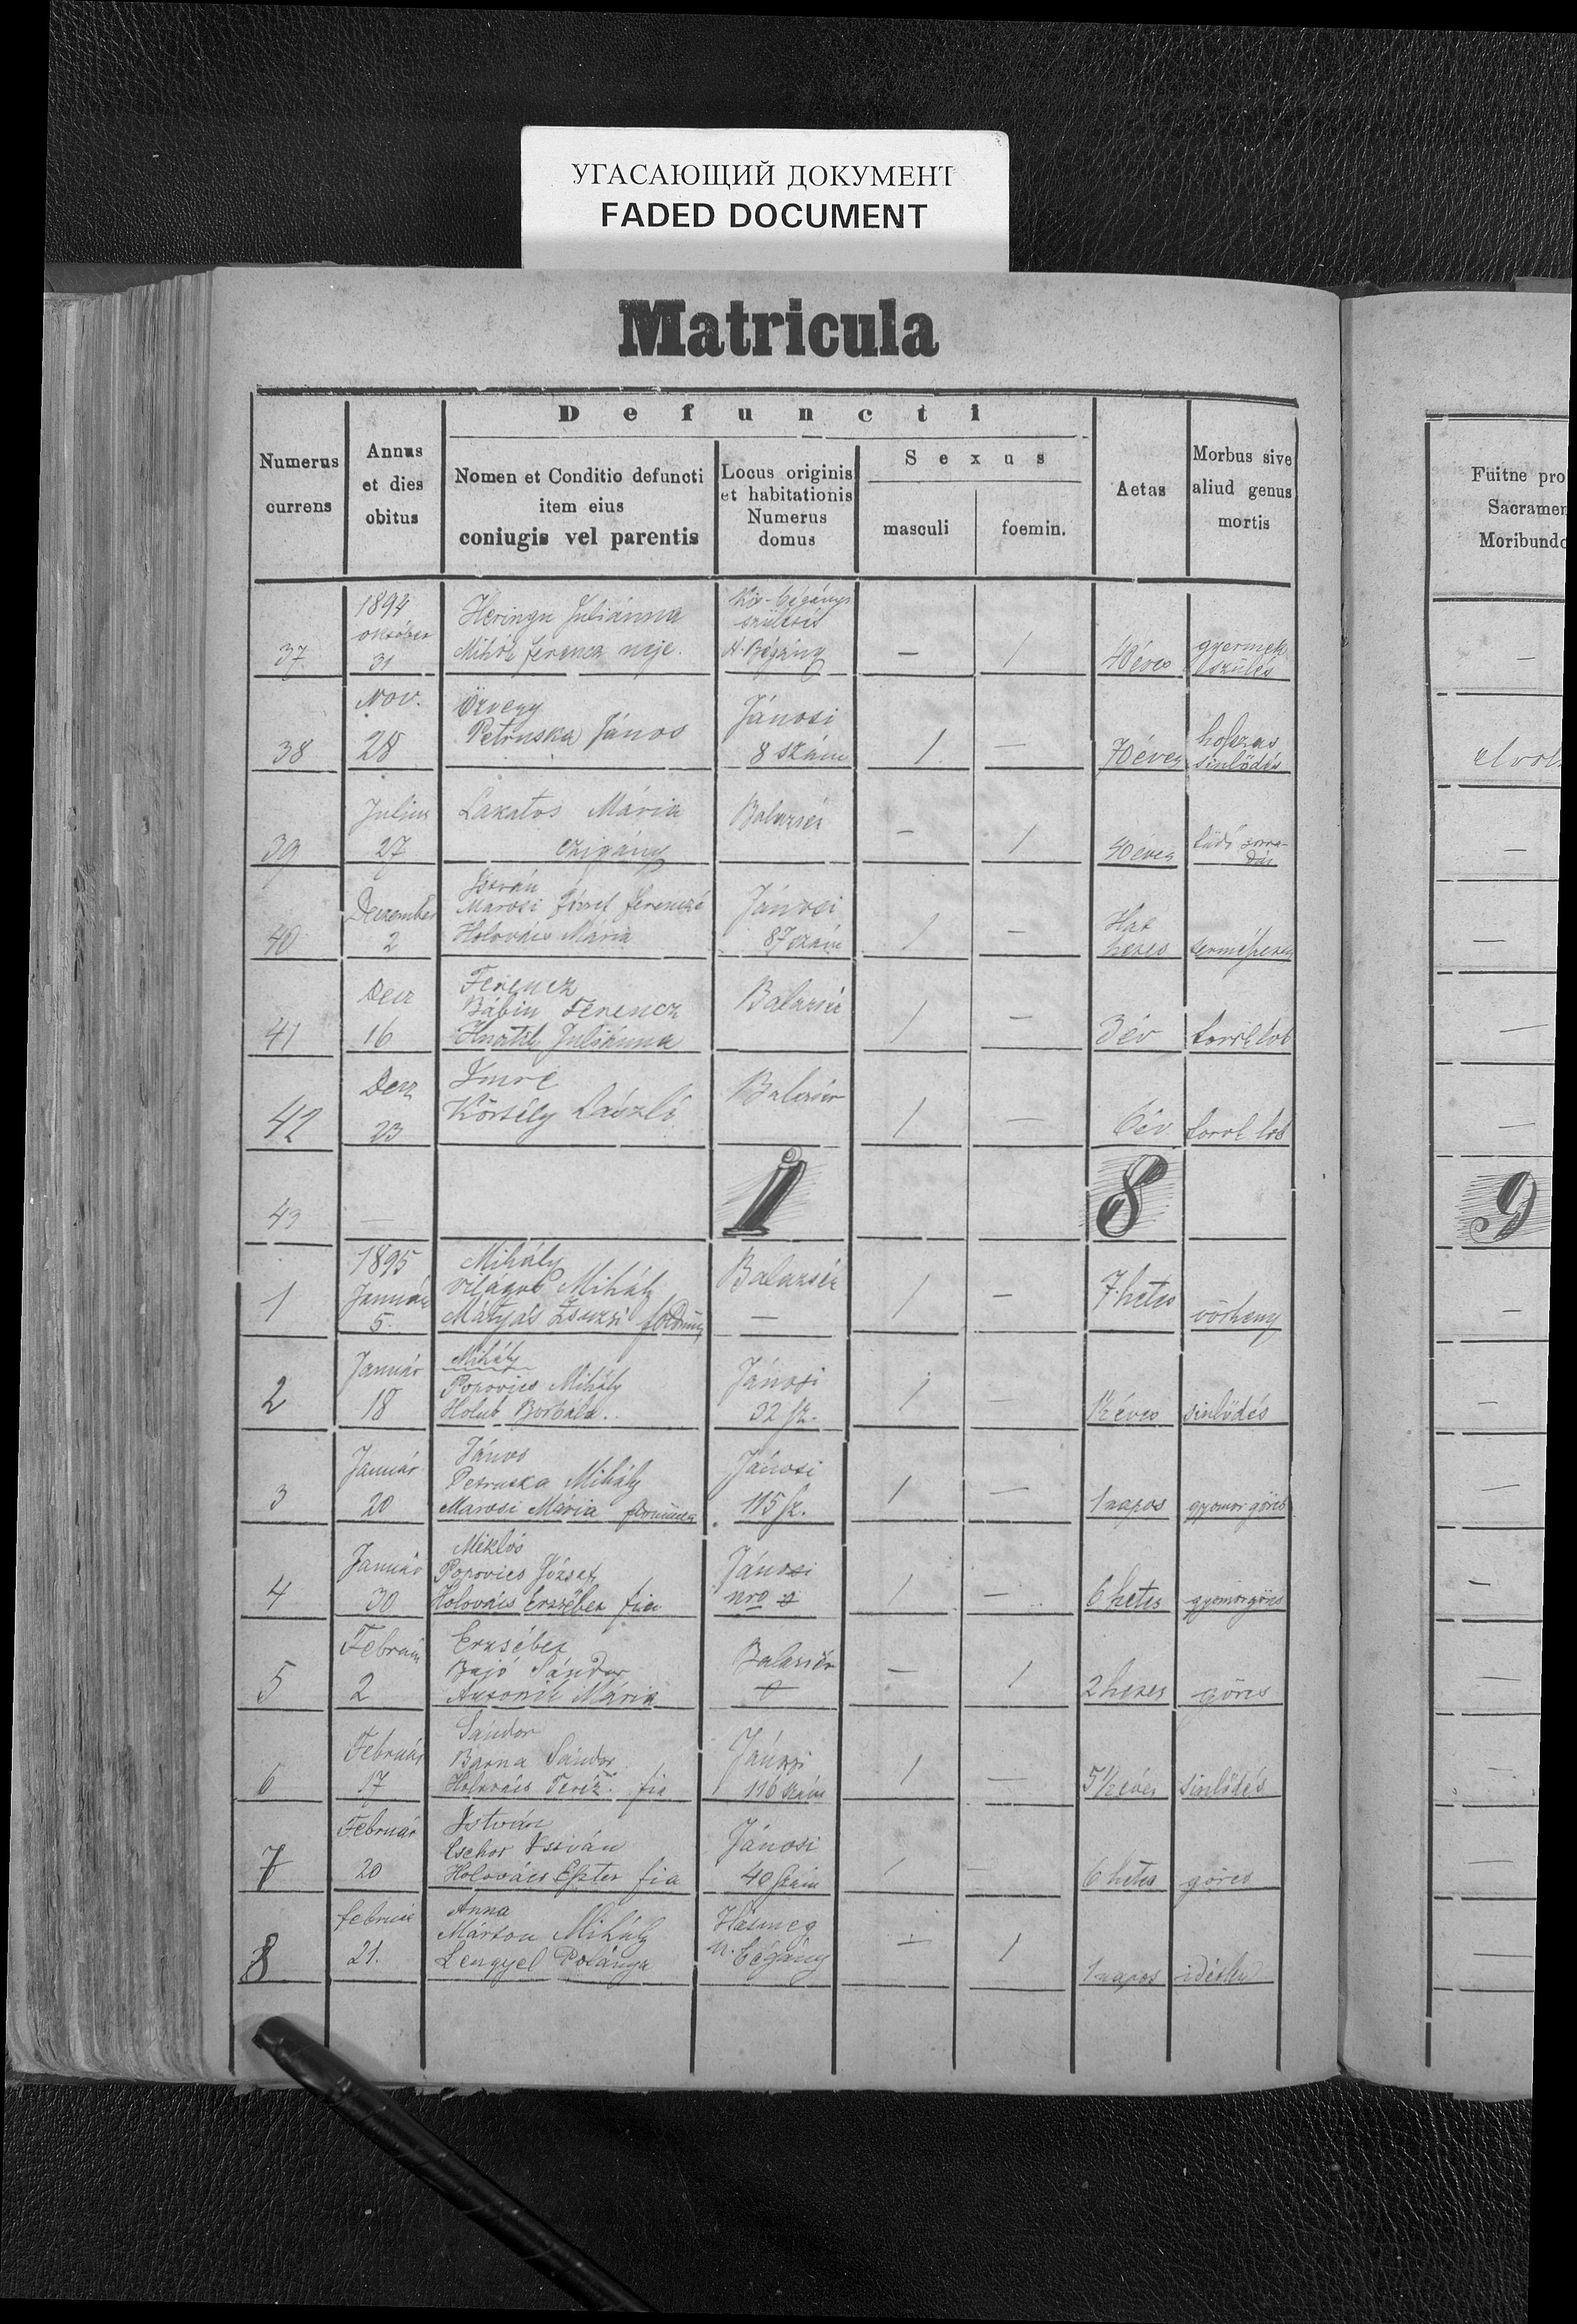 УГАСАЮЩИЙ ДОКУМЕНТ
FADED DOCUMENT
Matricula
Defuncti
Numerus currens
Annus et dies obitus
Nomen et Conditio defuncti item eius coniugis vel parentis
Locus originis et habitationis Numerus domus
Sexus
masculi
foemin.
Aetas
Morbus sive aliud genus mortis
Fuitne pro
Sacramen
Moribundo
37
1894
október
31
Juliánna
Ferencz neje.
—
1
40 éves
gyermek
szülés
—
38
Nov.
28
Özvegy
Petruska János
Jánosi
8 szám
1
—
70 éves
sinlődés
39
Julius
27
Lakatos Mária
czigány
Balazsér
—
1
40 éves
—
40
Deczember
2
Marosi József
Holovács Mária
Jánosi
87 szám
1
—
Hat
hetes
—
41
Decz
16
Ferencz
Bábin Ferencz
Juliánna
Balazsér
1
—
3 év
torok lob
—
42
Decz
23
Imre
László
Balazsér
1
—
6 év
torok lob
—
43
—
1
8
9
1
1895
Január
5.
Mihály
Mihály
Mátyás Zsuzsi
Balazsér
—
1
—
7 hetes
vörheny
—
2
Január
18
Mihály
Popovics Mihály
Holub Borbála.
Jánosi
32 sz.
1
—
1½ éves
sinlődés
—
3
Január
20
János
Petruska Mihály
Marosi Mária
Jánosi
115 sz.
1
—
1 napos
gyomor görcs
—
4
Január
30
Miklós
Popovics József
Holovács Erzsébet fia
Jánosi
nro
1
—
6 hetes
gyomorgörcs
—
5
Február
2
Erzsébet
Bajó Sándor
Mária
Balazsér
—
1
2 hetes
görcs
—
6
Február
17
Sándor
Barna Sándor
Holovács Teréz. fia
Jánosi
116 szám
1
—
5½ éves
sinlődés
—
7
Február
20
István
István
Holovács Eszter fia
Jánosi
40 szám
1
—
6 hetes
görcs
—
8
február
21.
Anna
Márton Mihály
Lengyel
—
1
1 napos
idétlen
—